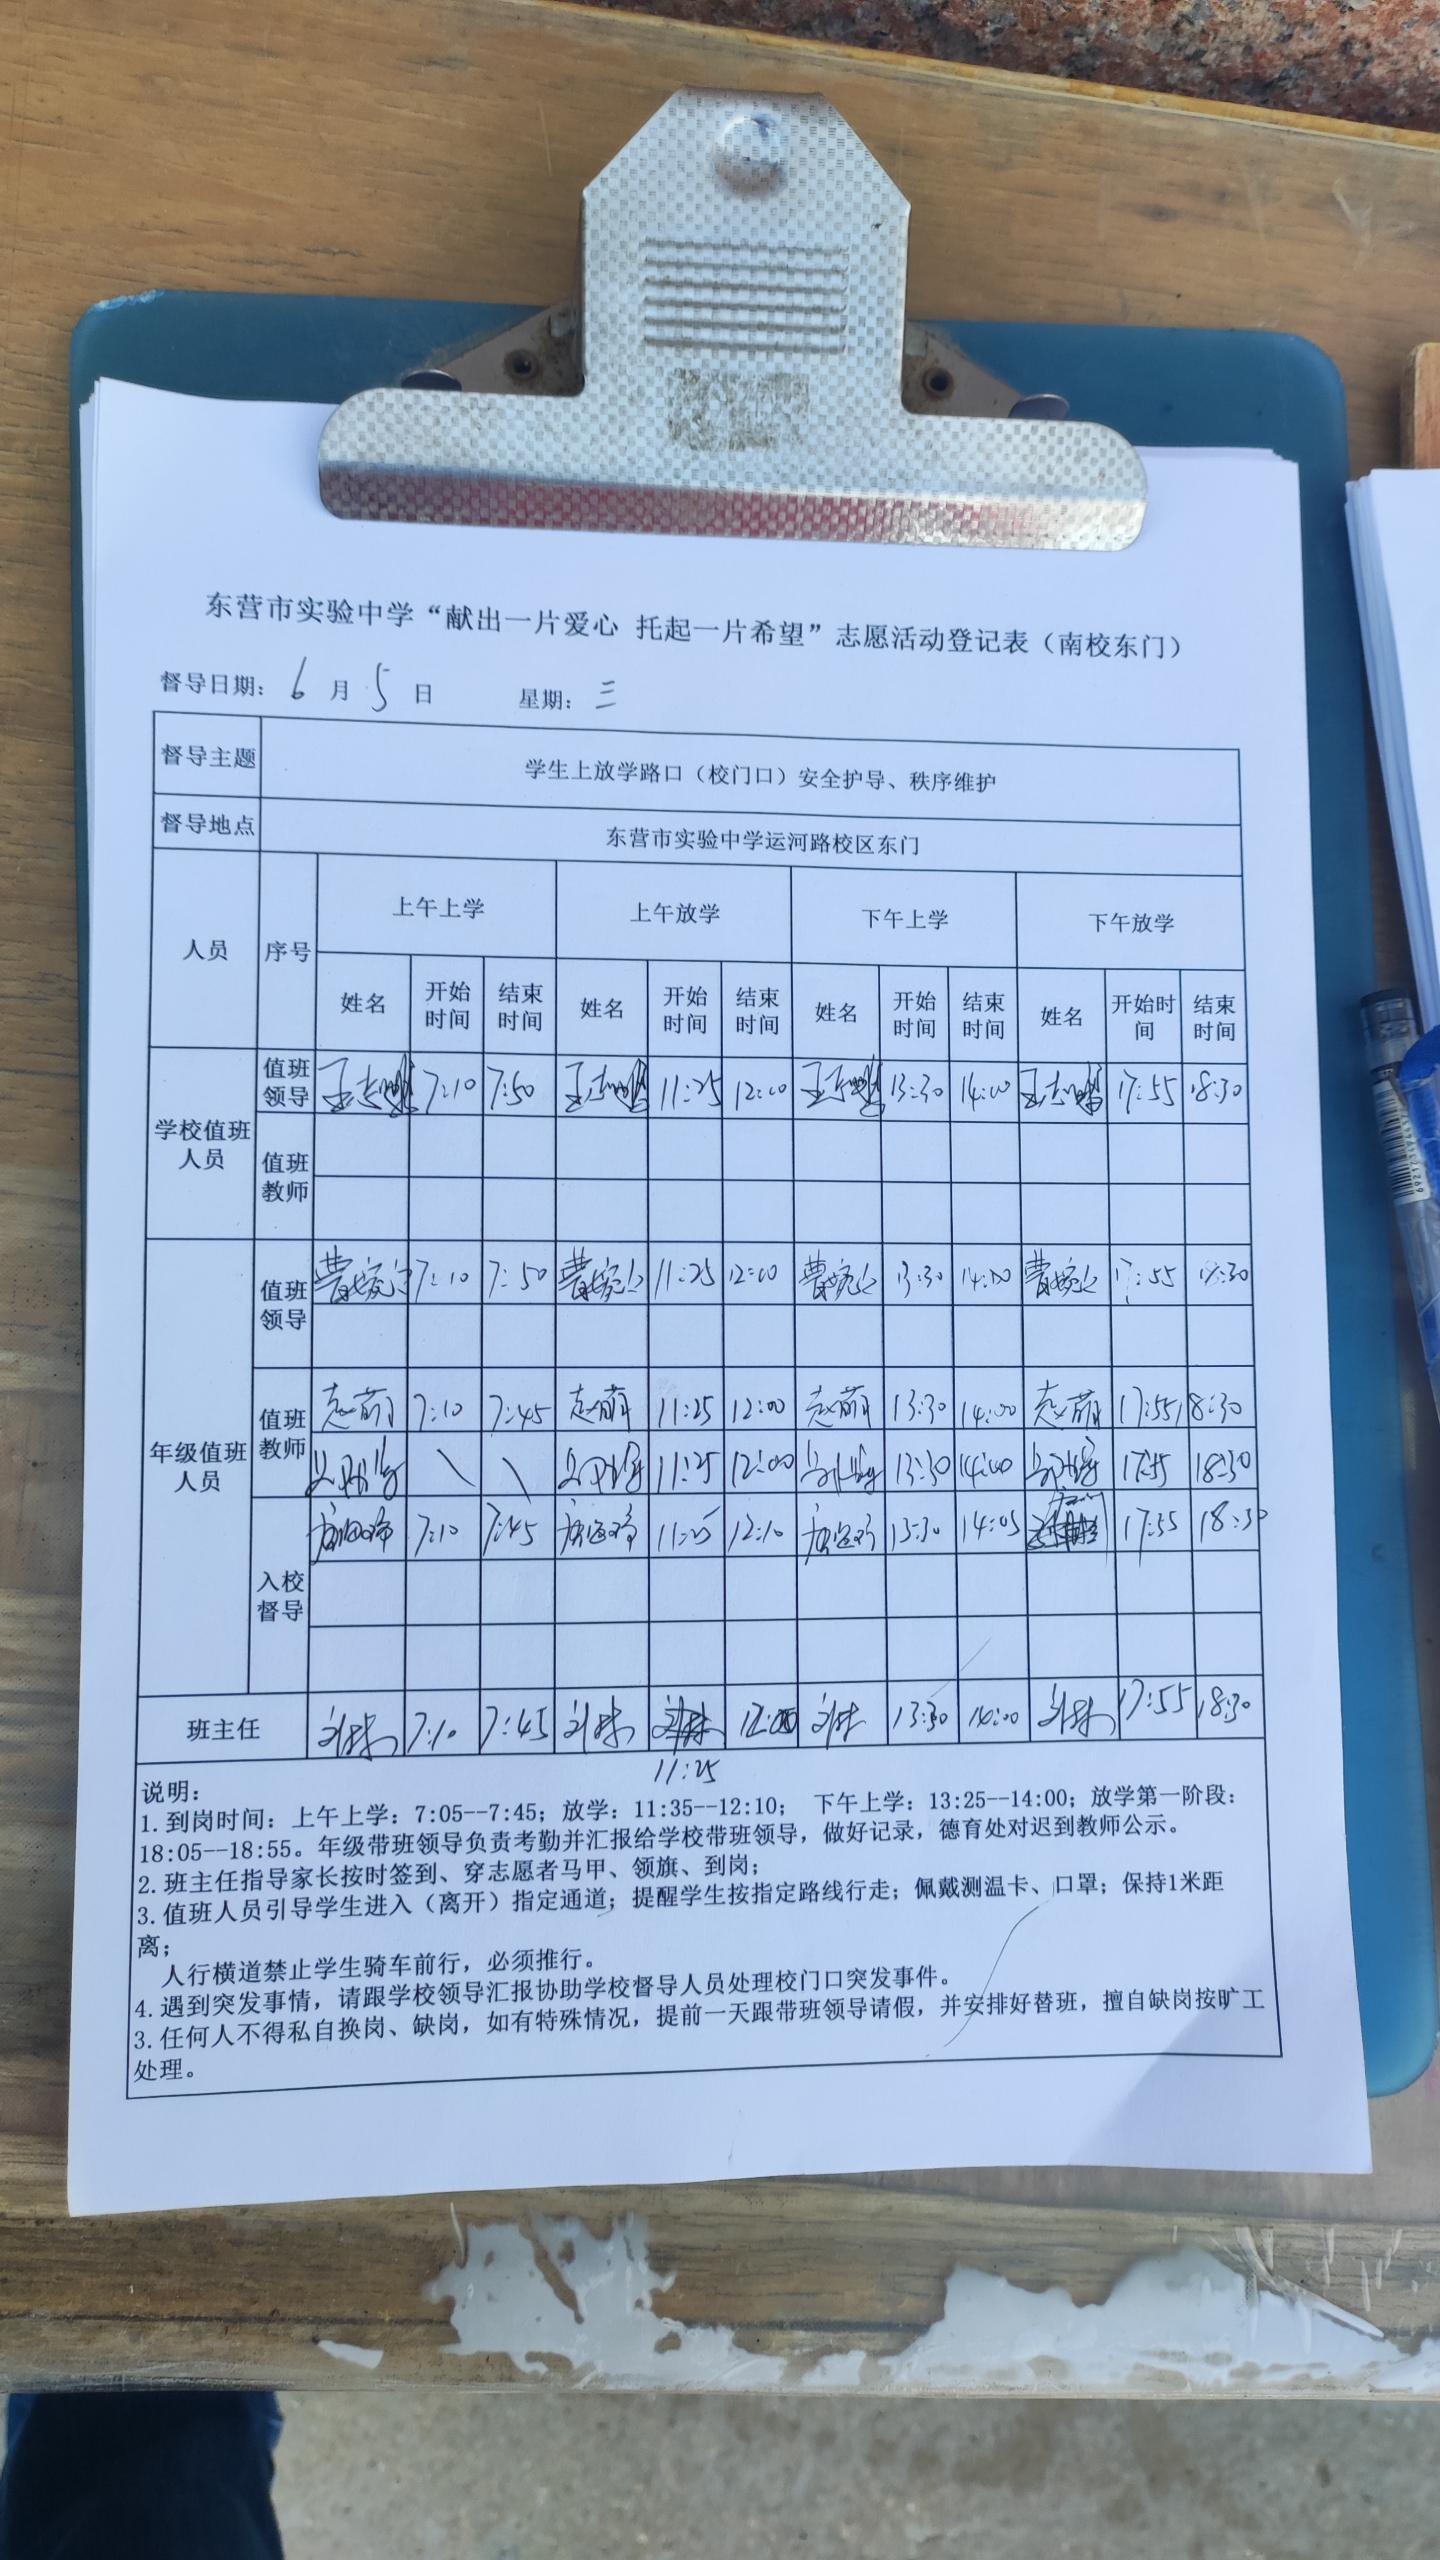 东营市实验中学“献出一片爱心 托起一片希望”志愿活动登记表（南校东门）
督导日期： 6 月 5 日 星期： 三
督导主题 学生上放学路口（校门口）安全护导、秩序维护
督导地点 东营市实验中学运河路校区东门
人员 序号 上午上学 上午放学 下午上学 下午放学
姓名 开始时间 结束时间 姓名 开始时间 结束时间 姓名 开始时间 结束时间 姓名 开始时间 结束时间
学校值班人员 值班领导 7:10 7:50 11:25 12:00 13:30 14:00 17:55 18:30
值班教师
年级值班人员 值班领导 7:10 7:50 11:25 12:00 13:30 14:00 17:55 18:30
值班教师 赵萌 7:10 7:45 赵萌 11:25 12:00 赵萌 13:30 14:00 赵萌 17:55 18:30
11:25 12:00 13:30 14:00 17:55 18:30
入校督导 7:10 7:45 11:25 12:10 13:30 14:05 17:55 18:30
班主任 7:10 7:45 12:00 13:30 14:00 17:55 18:30
11:25
说明：
1.到岗时间：上午上学：7:05--7:45；放学：11:35--12:10； 下午上学：13:25--14:00；放学第一阶段：
18:05--18:55。年级带班领导负责考勤并汇报给学校带班领导，做好记录，德育处对迟到教师公示。
2.班主任指导家长按时签到、穿志愿者马甲、领旗、到岗；
3.值班人员引导学生进入（离开）指定通道；提醒学生按指定路线行走；佩戴测温卡、口罩；保持1米距
离；
人行横道禁止学生骑车前行，必须推行。
4.遇到突发事情，请跟学校领导汇报协助学校督导人员处理校门口突发事件。
3.任何人不得私自换岗、缺岗，如有特殊情况，提前一天跟带班领导请假，并安排好替班，擅自缺岗按旷工
处理。